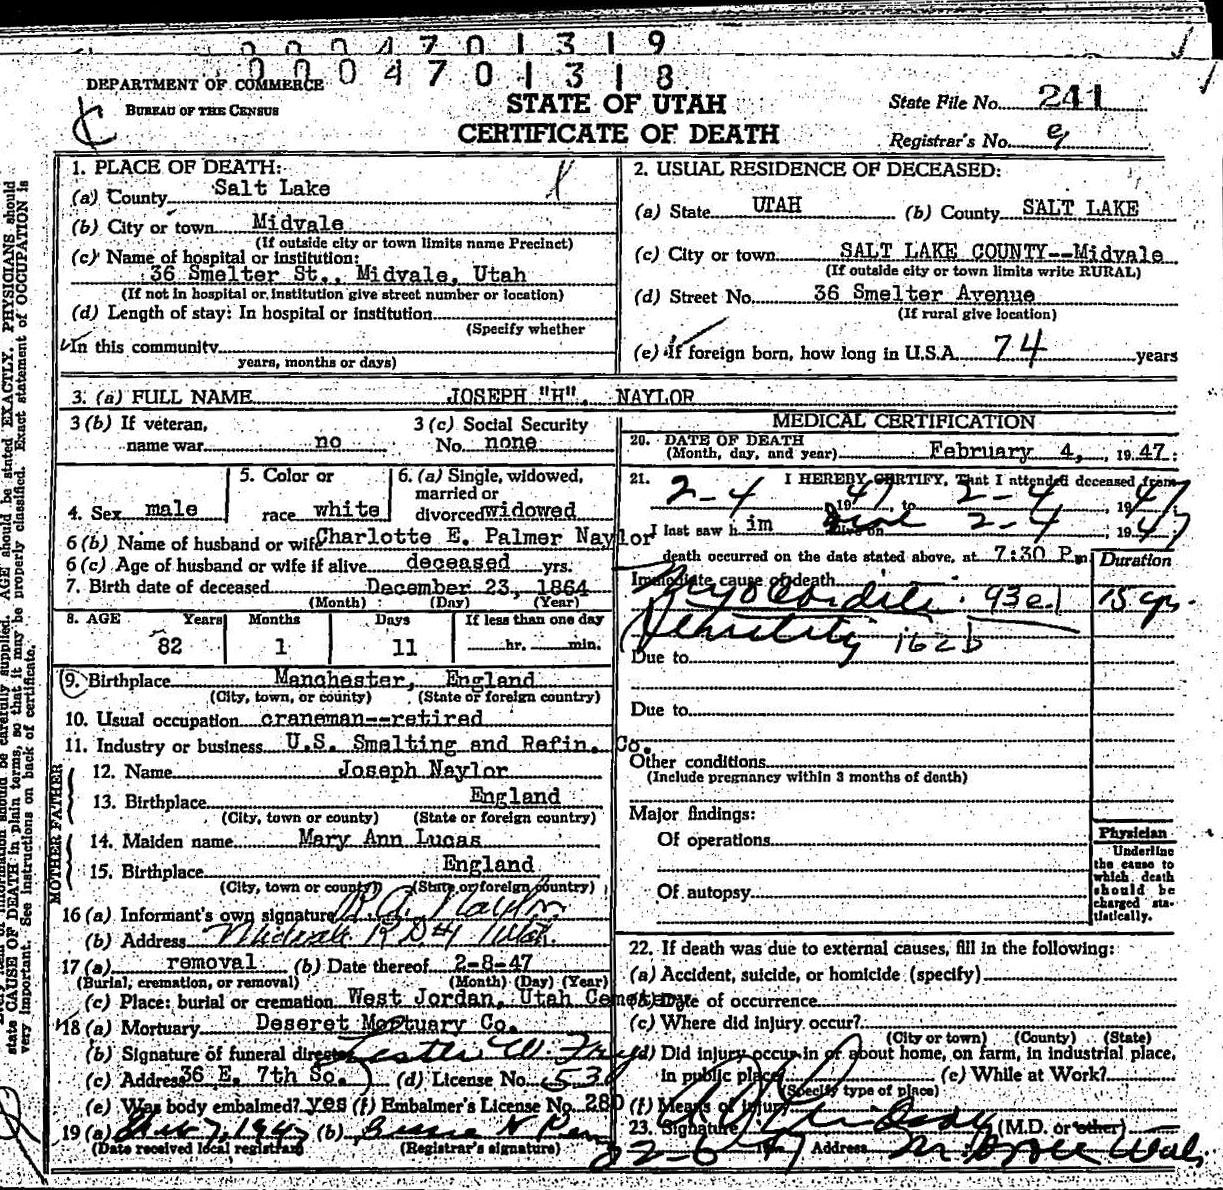 0004701319
0004701318
DEPARTMENT OF COMMERCE
BUREAU OF THE CENSUS
STATE OF UTAH
CERTIFICATE OF DEATH
State File No. 241
Registrar's No.
1. PLACE OF DEATH:
(a) County Salt Lake
(b) City or town Midvale
(If outside city or town limits name Precinct)
(c) Name of hospital or institution:
36 Smelter St., Midvale, Utah
(If not in hospital or institution give street number or location)
(d) Length of stay: In hospital or institution
(Specify whether
In this community
years, months or days)
2. USUAL RESIDENCE OF DECEASED:
(a) State UTAH (b) County SALT LAKE
(c) City or town SALT LAKE COUNTY--Midvale
(If outside city or town limits write RURAL)
(d) Street No. 36 Smelter Avenue
(If rural give location)
(e) If foreign born, how long in U.S.A. 74 years
3. (a) FULL NAME JOSEPH "H". NAYLOR
3 (b) If veteran,
name war no
3 (c) Social Security
No. none
4. Sex male
5. Color or
race white
6. (a) Single, widowed,
married or
divorced widowed
6 (b) Name of husband or wife Charlotte E. Palmer Naylor
6 (c) Age of husband or wife if alive deceased yrs.
7. Birth date of deceased December 23, 1864
(Month) (Day) (Year)
8. AGE Years Months Days If less than one day
82 1 11 hr. min.
9. Birthplace Manchester, England
(City, town, or county) (State or foreign country)
10. Usual occupation craneman--retired
11. Industry or business U.S. Smelting and Refin. Co.
FATHER
12. Name Joseph Naylor
13. Birthplace England
(City, town or county) (State or foreign country)
MOTHER
14. Maiden name Mary Ann Lucas
15. Birthplace England
(City, town or county) (State or foreign country)
16 (a) Informant's own signature R A Naylor
(b) Address Midvale R D #1 Utah.
17 (a) removal (b) Date thereof 2-8-47
(Burial, cremation, or removal) (Month) (Day) (Year)
(c) Place: burial or cremation West Jordan, Utah Cemetery
18 (a) Mortuary Deseret Mortuary Co.
(b) Signature of funeral director Lester W.
(c) Address 36 E. 7th So. (d) License No. 538
(e) Was body embalmed? yes (f) Embalmer's License No. 280
19 (a) 7, 1947 (b)
(Date received local registrar) (Registrar's signature)
MEDICAL CERTIFICATION
20. DATE OF DEATH
(Month, day, and year) February 4, 1947
21. I HEREBY CERTIFY, That I attended deceased from
2-4 1947 to 2-4, 1947
I last saw him alive on 2-4, 1947
death occurred on the date stated above, at 7:30 P.m
Duration
Immediate cause of death
Myocarditis 93e1 15 yrs.
162b
Due to
Due to
Other conditions
(Include pregnancy within 3 months of death)
Major findings:
Of operations
Of autopsy
Physician
Underline
the cause to
which death
should be
charged sta-
tistically.
22. If death was due to external causes, fill in the following:
(a) Accident, suicide, or homicide (specify)
(b) Date of occurrence
(c) Where did injury occur?
(City or town) (County) (State)
(d) Did injury occur in or about home, on farm, in industrial place,
in public place (e) While at Work?
(Specify type of place)
(f) Means of injury
23. Signature (M.D. or other)
2-6-47 Address Midvale Utah
state CAUSE OF DEATH in plain terms, so that it may be properly classified. Exact statement of OCCUPATION is
very important. See instructions on back of certificate.